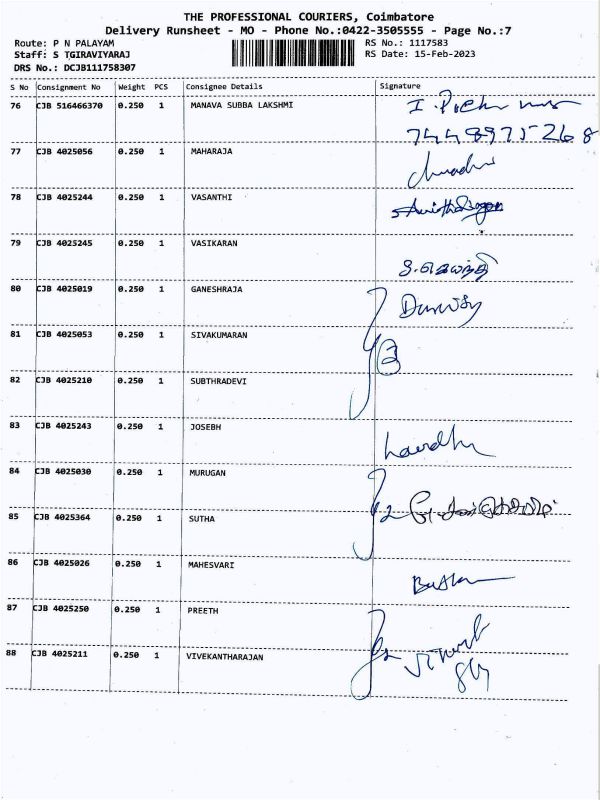 THE PROFESSIONAL COURIERS, Coimbatore
Delivery Runsheet - MO - Phone No.:0422-3505555 - Page No.:7
Route: P N PALAYAM
RS No.: 1117583
Staff: S TGIRAVIYARAJ
RS Date: 15-Feb-2023
DRS No.: DCJB111758307
S No Consignment No Weight PCS Consignee Details Signature
76 CJB 516466370 0.250 1 MANAVA SUBBA LAKSHMI
7448975268
77 CJB 4025056 0.250 1 MAHARAJA
78 CJB 4025244 0.250 1 VASANTHI
79 CJB 4025245 0.250 1 VASIKARAN
80 CJB 4025019 0.250 1 GANESHRAJA
81 CJB 4025053 0.250 1 SIVAKUMARAN
3
82 CJB 4025210 0.250 1 SUBTHRADEVI
83 CJB 4025243 0.250 1 JOSEBH
84 CJB 4025030 0.250 1 MURUGAN
85 CJB 4025364 0.250 1 SUTHA
86 CJB 4025026 0.250 1 MAHESVARI
87 CJB 4025250 0.250 1 PREETH
88 CJB 4025211 0.250 1 VIVEKANTHARAJAN